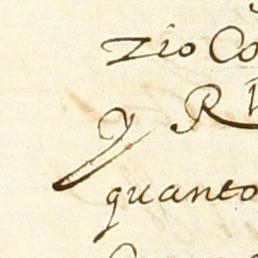 zio Co
y R
quanto